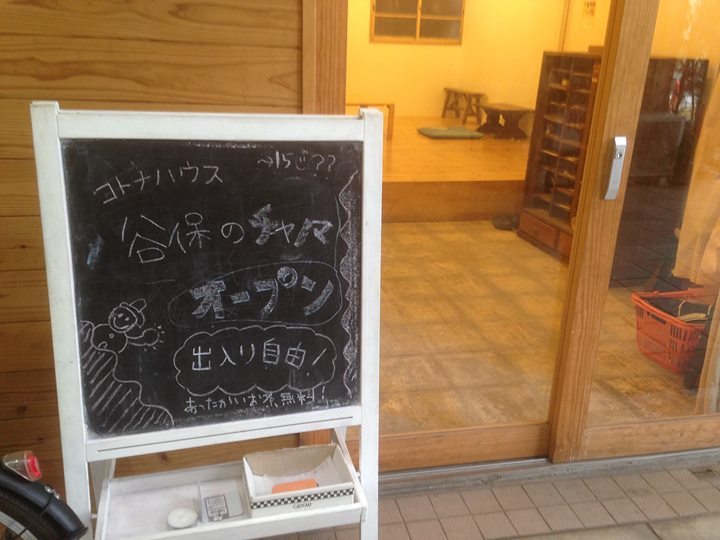 〜15:00??
コトナハウス
谷保のチャノマ
オープン
出入り自由!
あったかいお茶、無料!
CADEAU